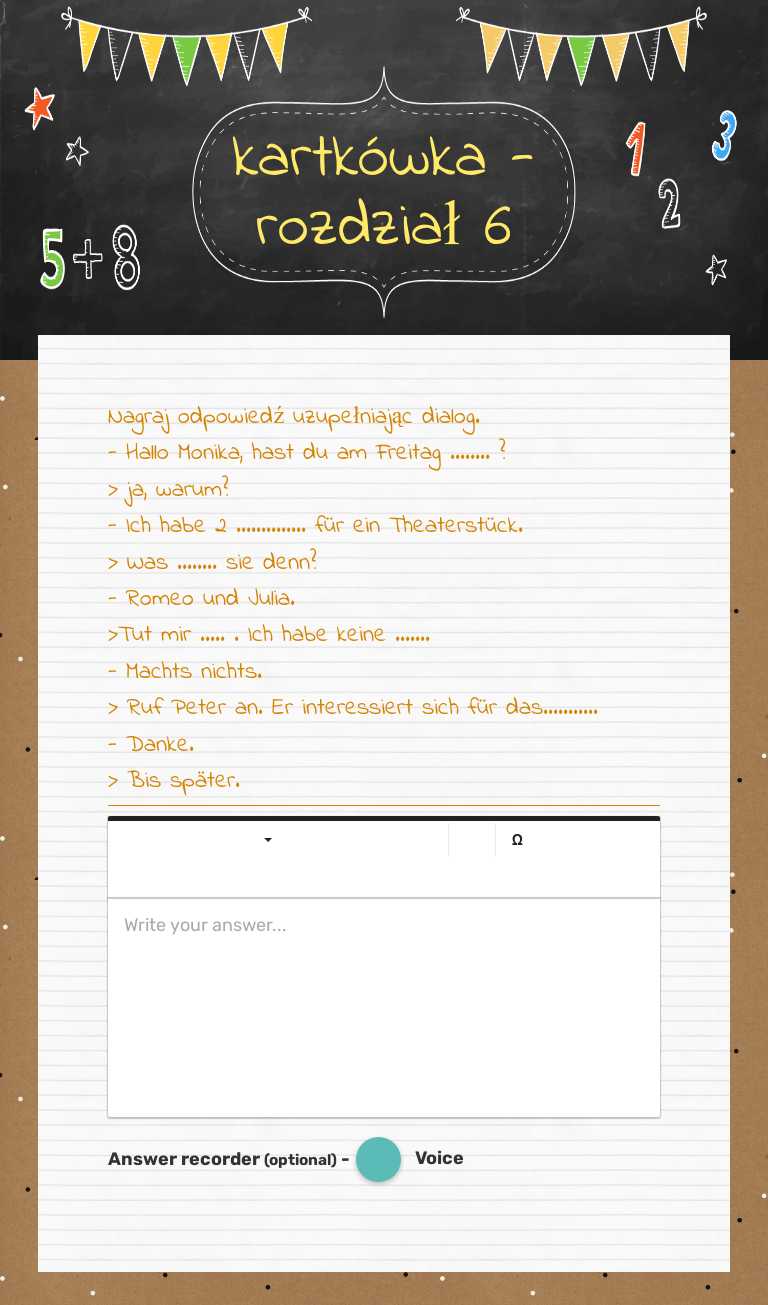 kartkówka -
rozdział 6
1
3
2
5+8
Nagraj odpowiedź uzupełniając dialog.
- Hallo Monika, hast du am Freitag ........ ?
> ja, warum?
- Ich habe 2 .............. für ein Theaterstück.
> was ........ sie denn?
- Romeo und Julia.
>Tut mir ..... . Ich habe keine .......
- Machts nichts.
> Ruf Peter an. Er interessiert sich für das...........
- Danke.
> Bis später.
Ω
Write your answer...
Answer recorder (optional) - Voice